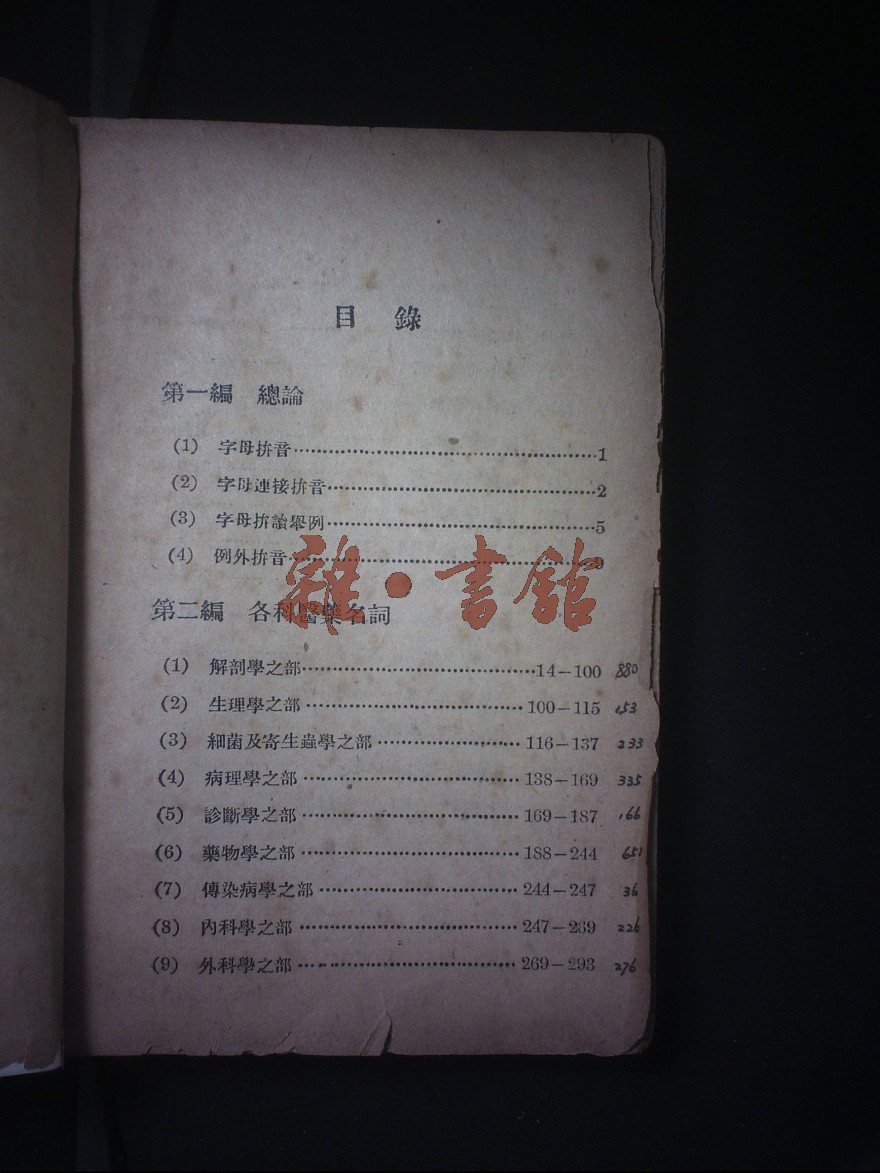 目錄
第一編 總論
(1) 字母拚音……1
(2) 字母連接拚音……2
(3) 字母拚讀舉例……5
(4) 例外拚音……9
雜·書館
第二編 各科醫藥名詞
(1) 解剖學之部……14—100 880
(2) 生理學之部……100—115 153
(3) 細菌及寄生蟲學之部……116—137 233
(4) 病理學之部……138—169 335
(5) 診斷學之部……169—187 166
(6) 藥物學之部……188—244
(7) 傳染病學之部……244—247 36
(8) 內科學之部……247—269 226
(9) 外科學之部……269—293 276